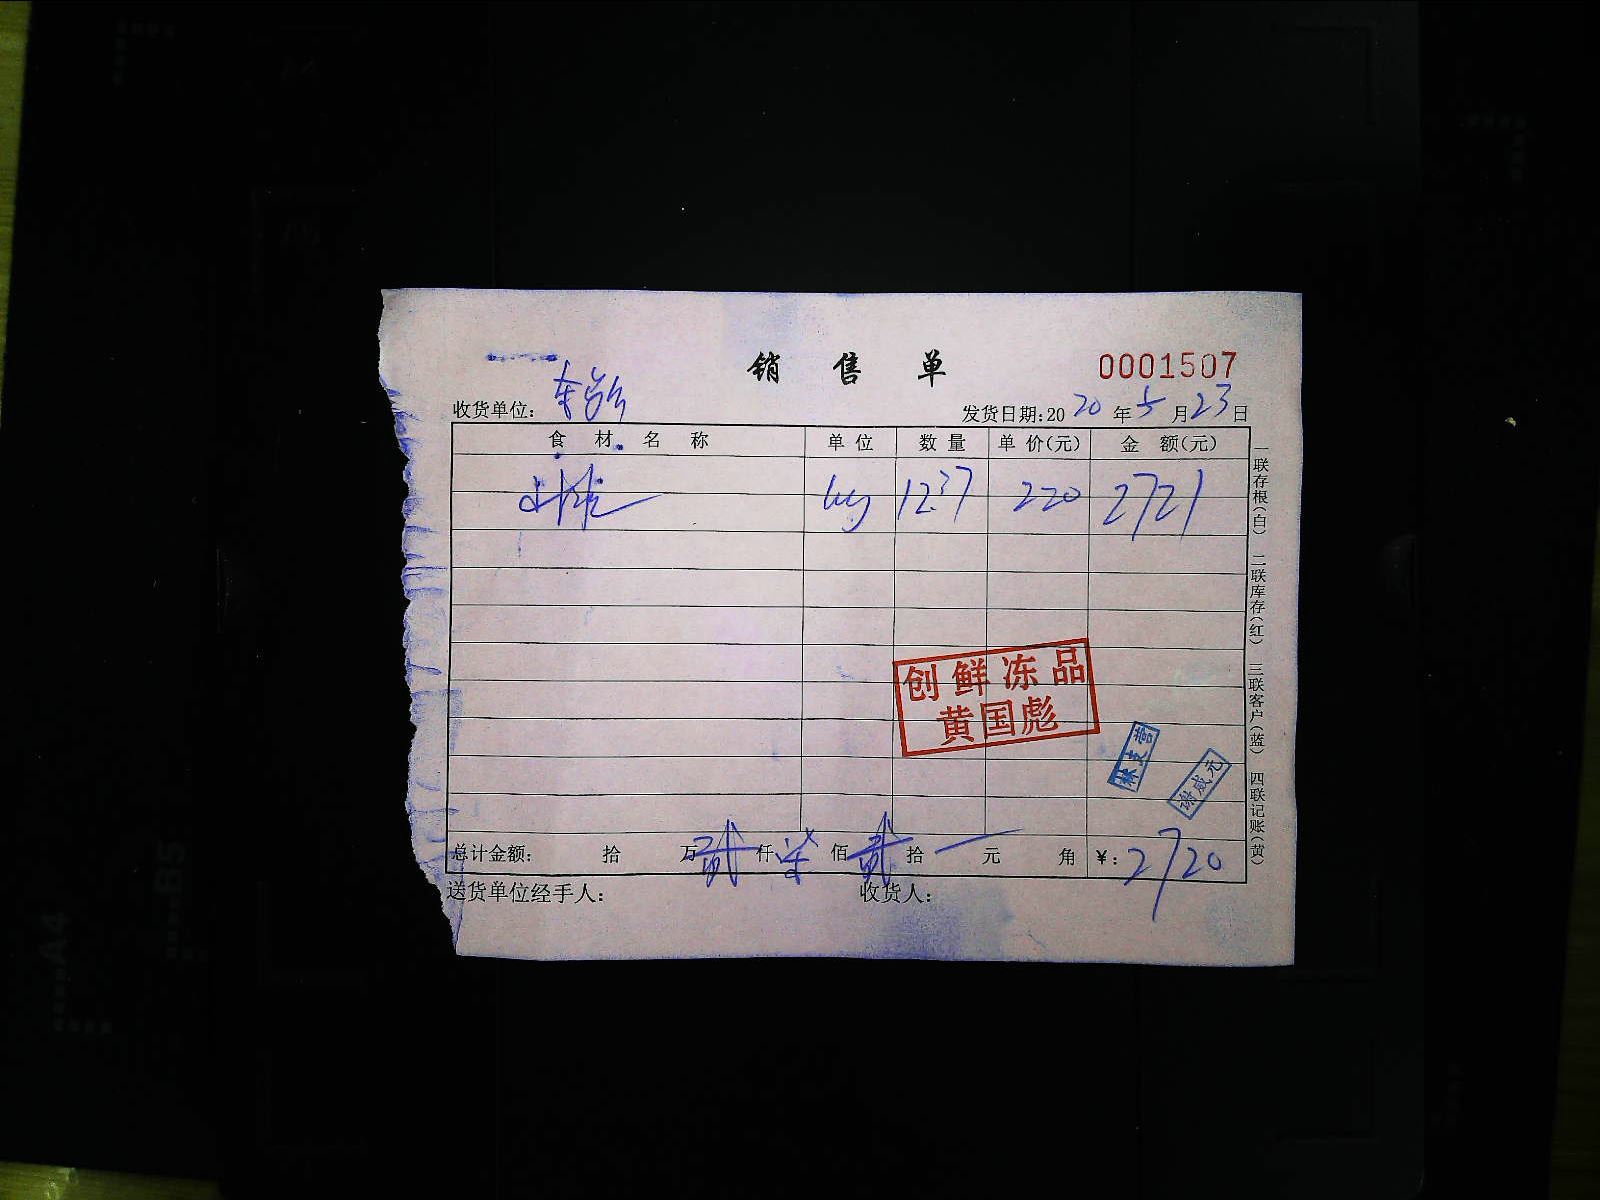 销 售 单
0001507
收货单位:
发货日期:2020年5月23日
食 材 名 称 单 位 数 量 单 价(元) 金 额(元)
kg 12.37 220 2721
创鲜冻品
黄国彪
谢威元
总计金额: 拾 万 贰 仟 柒 佰 贰 拾 一 元 角 ¥: 2720
送货单位经手人: 收货人:
一联存根(白) 二联库存(红) 三联客户(蓝) 四联记账(黄)
A4
B5